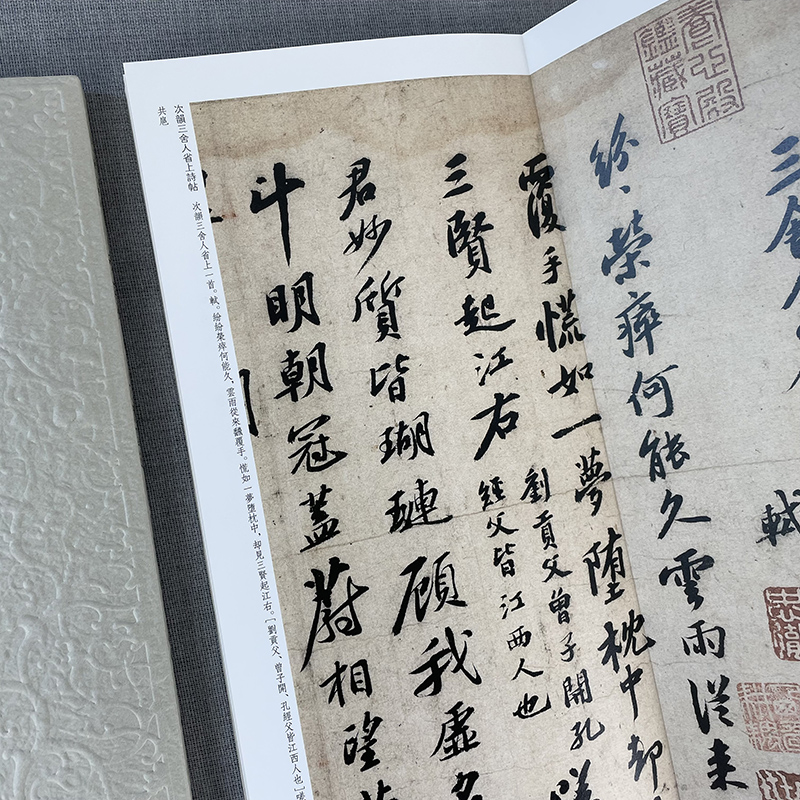 養心殿鑑藏寶
三舍人
軾
紛〻榮瘁何能久雲雨從來
覆手慌如一夢墮枕中却
三賢起江右
劉貢父曾子開孔
經父皆江西人也
嗟
君妙質皆瑚璉顧我虛名
斗明朝冠蓋蔚相望
次韻三舍人省上詩帖
次韻三舍人省上一首。軾。紛紛榮瘁何能久,雲雨從來翻覆手。慌如一夢墮枕中,却見三賢起江右。[劉貢父、曾子開、孔經父皆江西人也]嗟
共扈